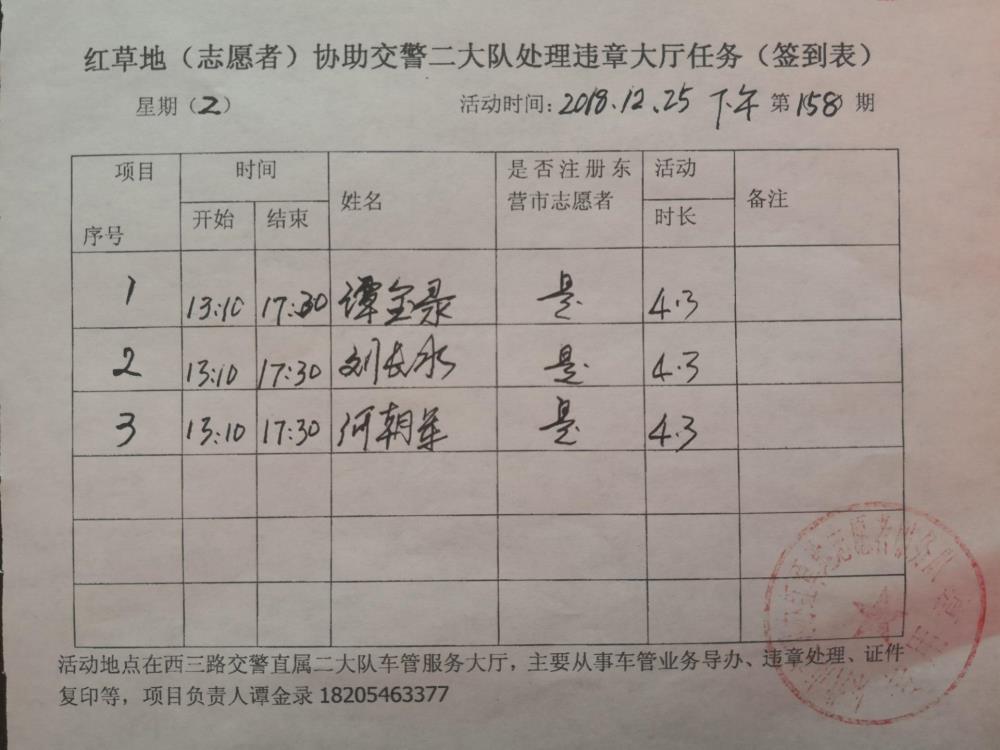 红草地（志愿者）协助交警二大队处理违章大厅任务（签到表）
星期（2） 活动时间：2018.12.25 下午 第158期
项目 时间 姓名 是否注册东营市志愿者 活动时长 备注
序号 开始 结束
1 13:10 17:30 谭金录 是 4.3
2 13:10 17:30 刘长水 是 4.3
3 13:10 17:30 何朝军 是 4.3
活动地点在西三路交警直属二大队车管服务大厅，主要从事车管业务导办、违章处理、证件
复印等，项目负责人谭金录 18205463377